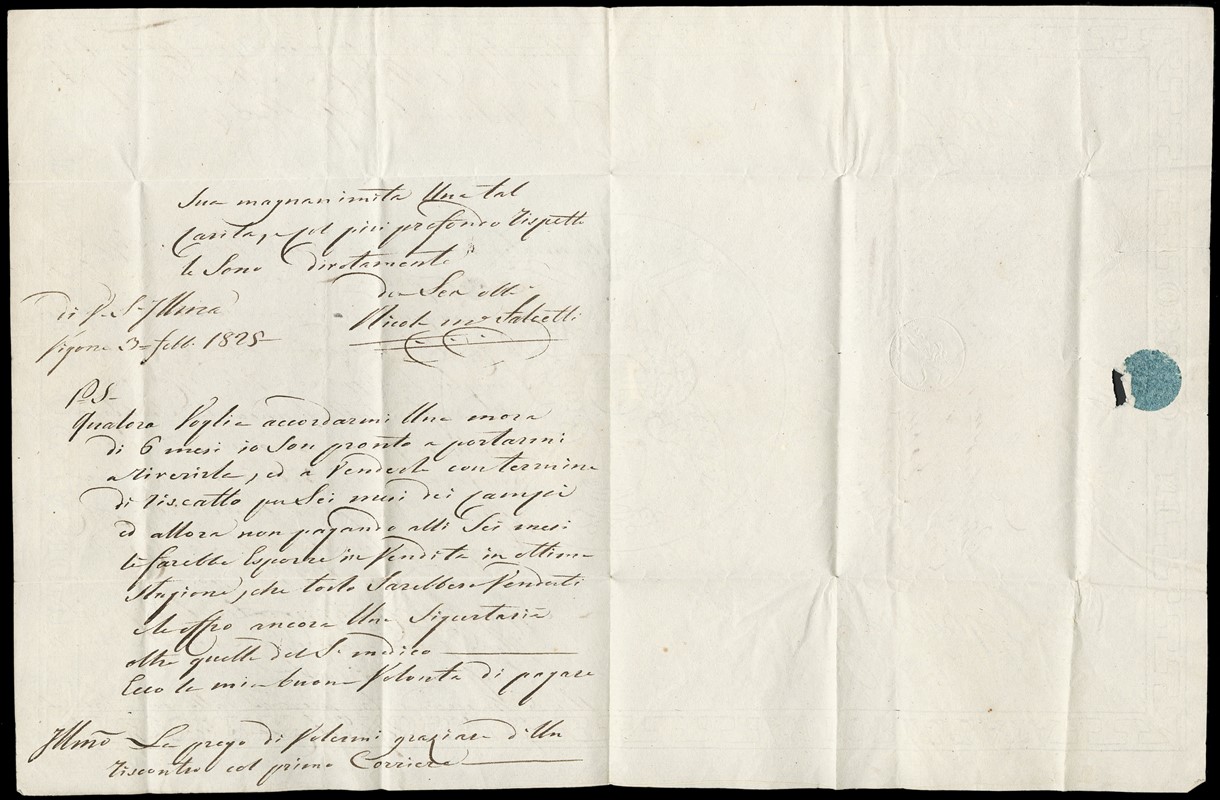 Sua magnanimità Una tal
Carità, e col più profondo rispetto
le Sono divotamente
di V. S. Illma
Vigone 3 = febb. 1825
P. S.
Qualora Voglia accordarmi Una mora
di 6 mesi io Son pronto a portarmi
a riverirla, ed a Venderle con termine
di riscatto per Sei mesi dei Campi
ed allora non pagando alli Sei mesi
le farebbe Esporre in Vendita in ottima
Stagione, che tosto Sarebbero Venduti
Le offro ancora Una Sigurtaria
oltre quella del Sr medico
Ecco la mia buona Volontà di pagare
Illmo La prego di Volermi graziare d'Un
riscontro col primo Corriere